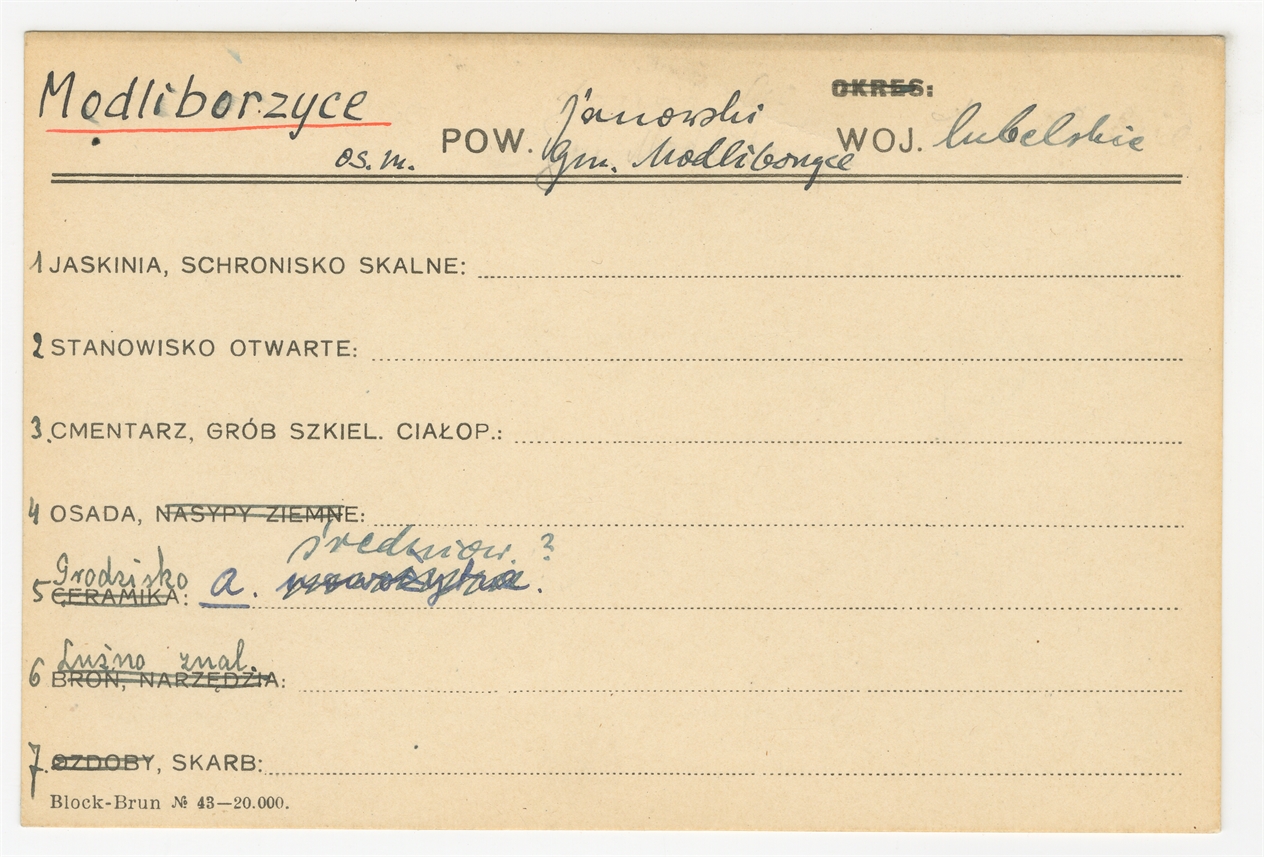 Modliborzyce OKRES:
os. m. POW. janowski WOJ. lubelskie
gm. Modliborzyce
1 JASKINIA, SCHRONISKO SKALNE:
2 STANOWISKO OTWARTE:
3. CMENTARZ, GRÓB SZKIEL. CIAŁOP.:
4 OSADA, NASYPY ZIEMNE:
średniow. ?
Grodzisko
5 CERAMIKA: a. nowożytna.
Luźno znal.
6 BROŃ, NARZĘDZIA:
7. OZDOBY, SKARB:
Block-Brun № 43—20.000.